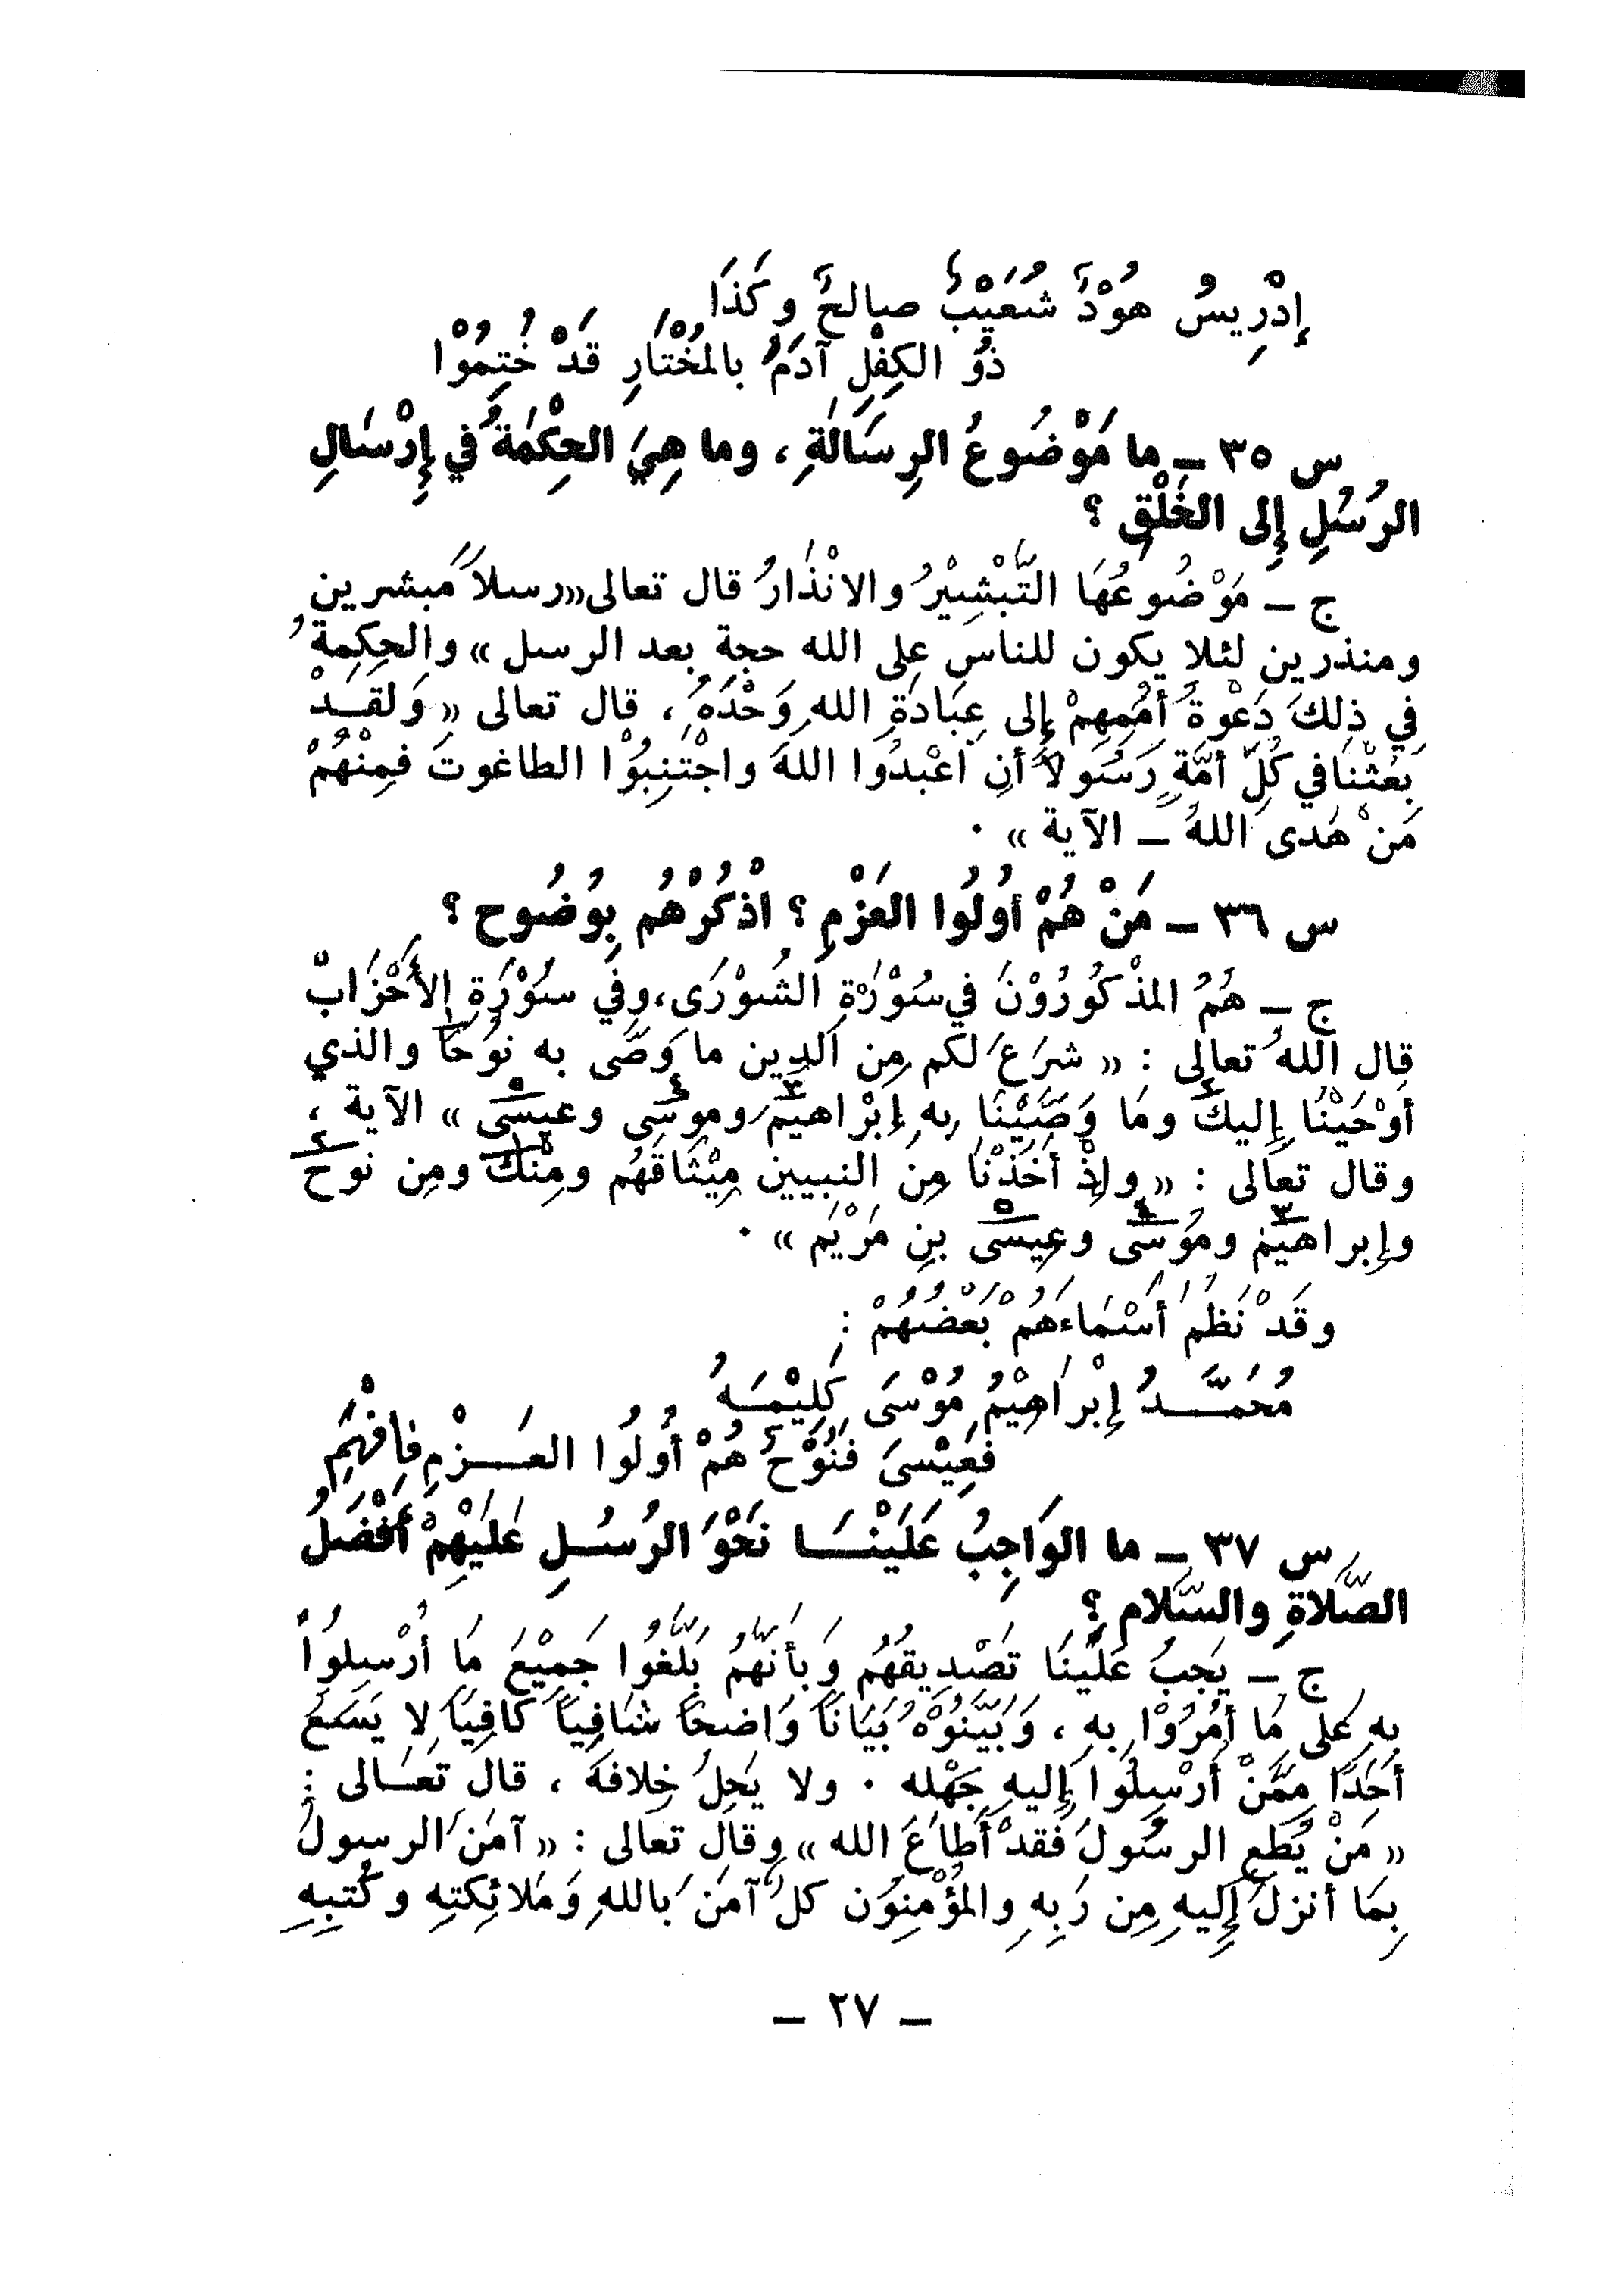 إِدْرِيسُ هُوْدٌ شُعَيْبٌ صالحٌ وكَذَا
ذُو الكِفْلِ آدَمُ بالمُخْتَارِ قَدْ خُتِمُوْا
س ٣٥ – ما مَوْضُوعُ الرِسَالَةِ ، وما هِيَ الحِكْمَةُ في إِرْسَالِ
الرُسُلِ إِلى الخَلْقِ ؟
ج – مَوْضُوعُهَا التَّبْشِيْرُ والانْذَارُ قال تعالى «رسلاً مبشرين
ومنذرين لئلا يكون للناس على الله حجة بعد الرسل » والحِكمةُ
فِي ذلِكَ دَعْوةُ أُمَمِهِمْ إِلى عِبَادَةِ اللهِ وَحْدَهُ ، قال تعالى « وَلقَـدْ
بَعَثْنَا في كُلِّ أُمَّةٍ رَسُولاً أَنِ اعْبدُوا اللهَ واجْتَنِبُوْا الطاغوتَ فمِنْهُمْ
مَنْ هَدى اللهُ – الآية » .
س ٣٦ – مَنْ هُمْ أُولُوا العَزْمِ ؟ اذْكُرْهُم بِوُضُوح ؟
ج – هُمُ المذْكُورُوْنَ في سُوْرَةِ الشُوْرَى، وفي سُوْرَةِ الأَحْزَابْ
قال اللهُ تعالى : « شرَعَ لكم مِن الدِين ما وَصَّى به نوُحًا والذي
أَوْحَيْنَا إِليكَ ومَا وَصَّيْنَا بِهِ إِبْراهيمَ وموسَى وعيسَى » الآية ،
وقال تعالى : « وإِذْ أَخَذْنَا مِنَ النبيين مِيْثَاقَهُم ومِنْكَ ومِن نوحٍ
وإِبراهيمَ ومُوسَى وعِيسَى بنِ مَرْيَم » .
وقَدْ نَظَمَ أَسْمَاءَهُمْ بَعْضُهُمْ :
مُحَمَّـــدُ إِبْراهِيْمُ مُوْسَى كَلِيْمُـهُ
فَعِيْسَى فَنُوْحٌ هُمْ أُولُوا العَـــزْمِ فافْهَمِ
س ٣٧ – ما الوَاجِبُ عَلَيْنَــا نَحْوَ الرُسُـلِ عَلَيْهِمْ أَفْضَلُ
الصَّلاةِ والسَّلام ؟
ج – يَجِبُ عَلَيْنَا تَصْدِيقَهُم وَبأَنَّهُم بَلَّغُوا جَمِيْعَ مَا أُرْسِلوُا
بهِ عَلى مَا أُمُرُوْا بهِ ، وَبَيَّنُوْهُ بَيَانًا وَاضِحًا شَافِيًا كَافِيًا لا يَسَعُ
أَحَدًا مِمَّنْ أُرْسِلُوا إِليهِ جَهْله . ولا يَحِلُ خِلافهَ ، قال تَعَـالى :
« مَنْ يُطِعِ الرسُولَ فقدْ أَطاعَ الله » وقالَ تعالى : « آمَنَ الرسولُ
بِمَا أُنزلَ إِليهِ مِن رَبِهِ والمؤْمِنوُن كلٌ آمَنَ بِاللهِ وَمَلائِكتِهِ وكُتبِهِ
– ٢٧ –